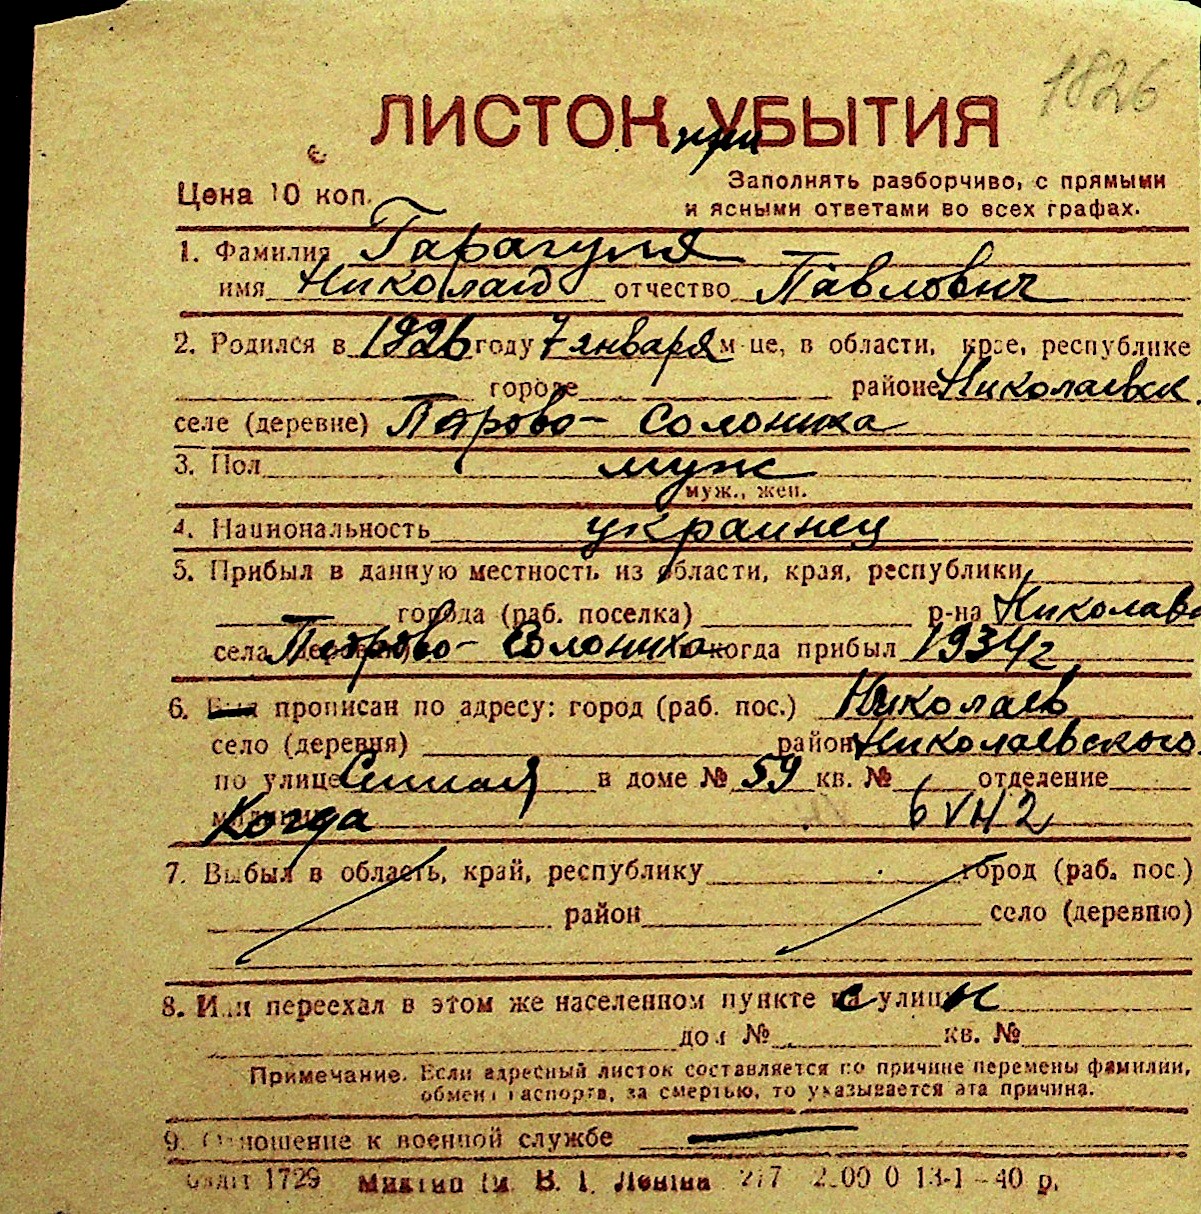 1826
ЛИСТОК УБЫТИЯ
при
Цена 10 коп.
Заполнять разборчиво, с прямыми
и ясными ответами во всех графах.
1. Фамилия Гарагуля
имя Николай отчество Павлович
2. Родился в 1926 году 7 января м-це, в области, крае, республике
городе районе Николаевск.
селе (деревне) Петрово-Солониха
3. Пол муж
муж., жен.
4. Национальность украинец
5. Прибыл в данную местность из области, края, республики
города (раб. поселка) р-на Николаев
села Петрово-Солониха когда прибыл 1934 г.
6. Был прописан по адресу: город (раб. пос.) Николаев
село (деревня) район Николаевского
по улице Сенная в доме № 59 кв. № отделение
милиции Когда 6 VII 42
7. Выбыл в область, край, республику город (раб. пос.)
район село (деревню)
8. Или переехал в этом же населенном пункте на с улицы и
дом № кв. №
Примечание. Если адресный листок составляется по причине перемены фамилии,
обмена паспорта, за смертью, то указывается эта причина.
9. Отношение к военной службе
1729 ім. В. І. Леніна 13-1-40 р.